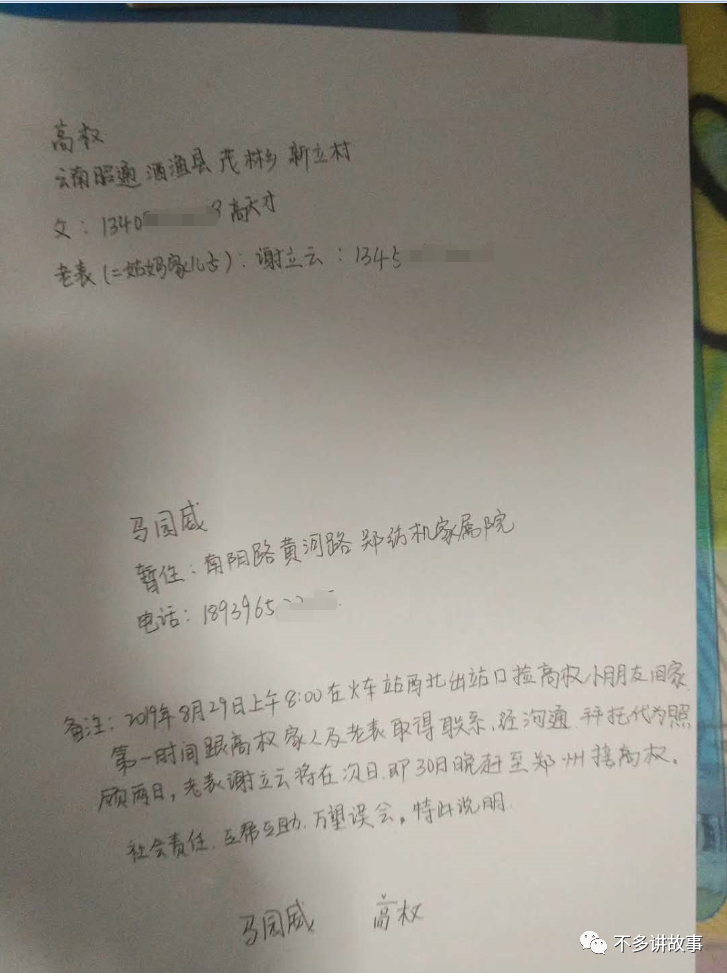 高权
云南昭通 酒渔县 茂彬乡 新立村
父：1340 3 高天才
老表(二姑妈家儿子)：谢立云：1345
马园威
暂住：南阳路黄河路 郑纺机家属院
电话：1893965
备注：2019年8月29日上午8:00在火车站西北出站口捡高权小朋友回家
第一时间跟高权家人及老表取得联系,经沟通,拜托代为照
顾两日,老表谢立云将在次日,即30日晚赶至郑州接高权。
社会责任.互帮互助.万望误会。特此说明.
马园威 高权
不多讲故事